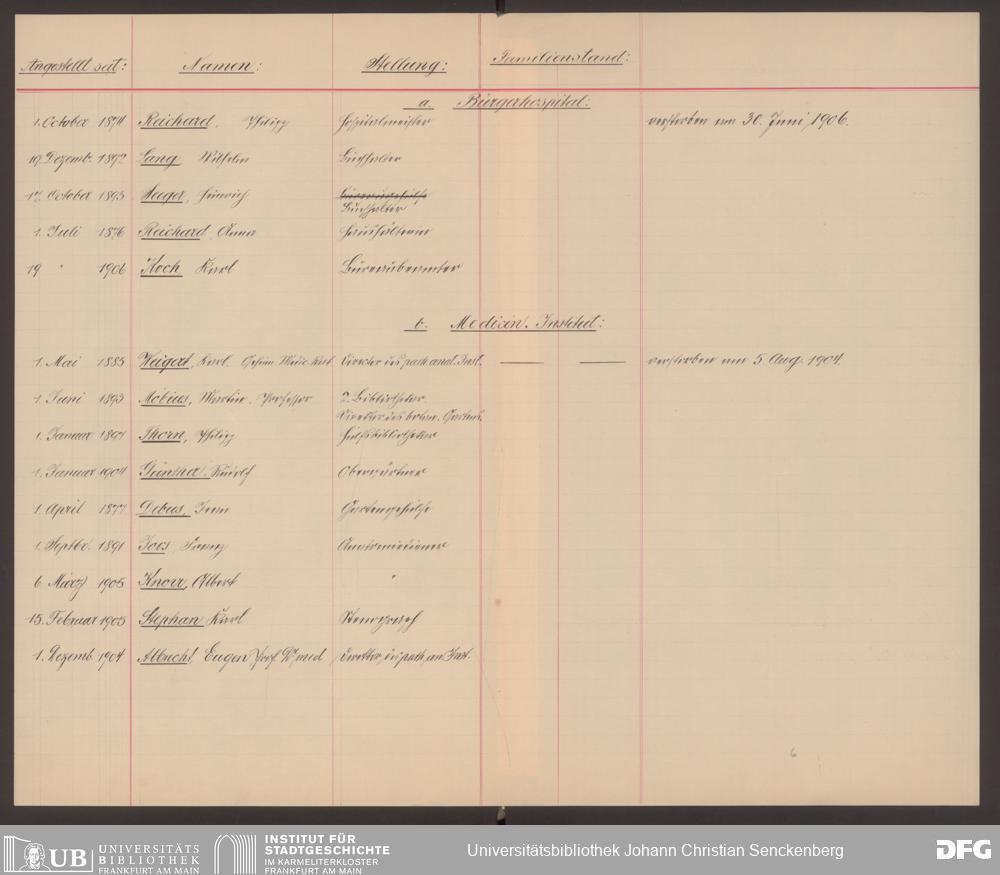 Angestellt seit: Namen: Stellung: Familienstand:
a. Bürgerhospital:
1. October 1874 Reichard, Philipp Hospitalmeister verstorben am 30. Juni 1906.
19. Dezemb. 1892 Lang, Wilhelm Buchhalter
17. October 1895 Seeger, Heinrich Bureaugehülfe
Buchhalter
1. Juli 1876 Reichard, Anna Haushälterin
19 " 1906 Koch Karl Bureaubeamter
b. Medicin. Institut:
1. Mai 1885 Weigert, Karl. Geheim. Medic. Rat Director des path. anat. Inst. verstorben am 5. Aug. 1904.
1. Juni 1893 Möbius, Martin. Professor 2. Bibliothekar
Direktor des botan. Gartens.
1. Januar Thorn, Philipp Hülfsbibliothekar
1. Januar 1904 Günther Rudolf Obergärtner
1. April 1877 Debus, Gartengehülfe
1. Septbr. 1891 Joos, Franz Anatomiediener
6 März 1905 Knorr, Albert "
15. Februar 1905 Stephan Karl Stenograph
1. Dezemb. 1904 Albrecht, Eugen Prof. Dr. med Direktor des path. an. Inst.
6
UB UNIVERSITÄTS
BIBLIOTHEK
FRANKFURT AM MAIN
INSTITUT FÜR
STADTGESCHICHTE
IM KARMELITERKLOSTER
FRANKFURT AM MAIN
Universitätsbibliothek Johann Christian Senckenberg
DFG